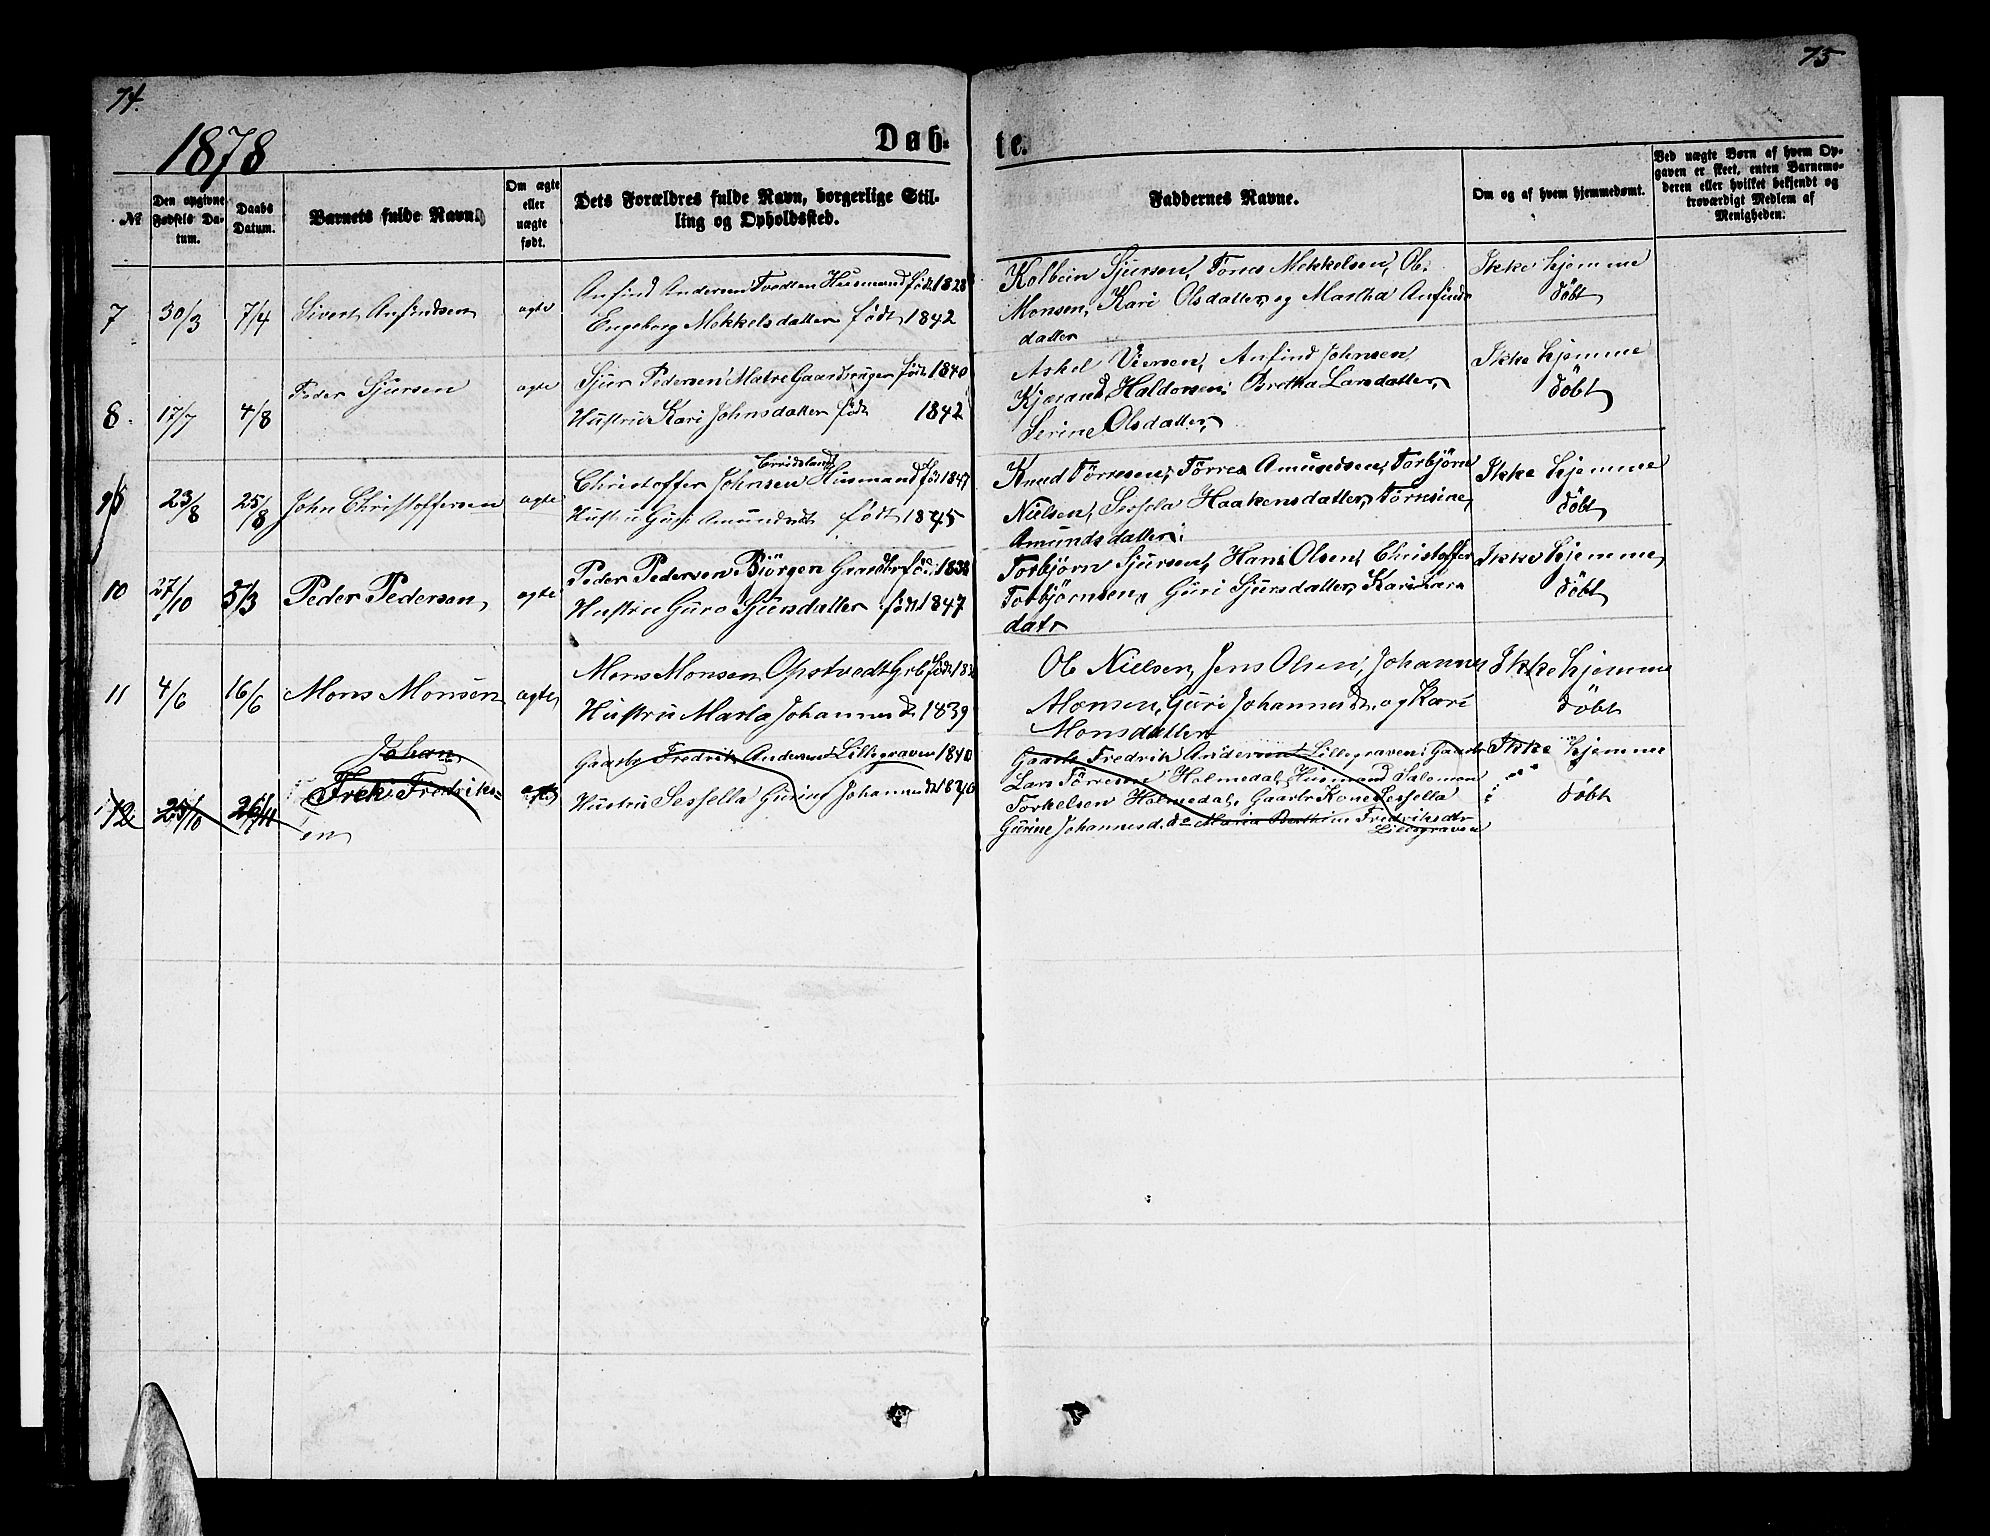 74.
75
1878
Døb-
te.
№
Den opgivne Fødsels Datum.
Daabs Datum.
Barnets fulde Navn.
Om ægte eller uægte født.
Dets Forældres fulde Navn, borgerlige Stilling og Opholdssted.
Faddernes Navne.
Om og af hvem hjemmedøbt.
Ved uægte Børn af hvem Opgaven er skeet, enten Barnemoderen eller hvilket bekjendt og troværdigt Medlem af Menigheden.
7 30/3 7/4 Sivert Anfindsen ægte
Anfind Andersen Tvedten Husmand født 1828
Engeborg Mekkelsdatter født 1842
Kolbein Sjursen, Tønes Mekkelsen, Ole
Monsen, Kari Olsdatter og Martha Anfinds
datter
Ikke hjemme
døbt
8. 17/7 4/8 Peder Sjursen ægte
Sjur Pedersen Matre Gaardbruger født 1840
Hustru Kari Johnsdatter født 1842
Askel Viersen, Anfind Johnsen
Kjærand Haldorsen, Bretha Larsdatter,
Serine Olsdatter,
Ikke hjemme
døbt
9 23/8 25/8 John Christoffersen ægte
Christoffer Johnsen Husmand født 1847
Hustru Guri Amundsdt født 1845
Knud Tørresen, Tørres Amundsen, Torbjørn
Nielsen, Sessela Haakensdatter, Tørresine,
Amundsdatter
Ikke hjemme
døbt
10 27/10 5/3 Peder Pedersen ægte
Peder Pedersen Biörgen Gaardbr født 1838
Hustru Guro Sjursdatter født 1847
Torbjørn Sjursen, Hans Olsen, Christoffer
Torbjørnsen, Guri Sjursdatter, Kari Lars
datr
Ikke hjemme
døbt
11 4/6 16/6 Mons Monsen ægte
Mons Monsen Opstvedt Grb født
Hustru Marta Johannesd 1839
Ole Nielsen, Jens Olsen, Johannes
Monsen, Guri Johannesdt, og Kari
Monsdatter
Ikke hjemme
døbt
12 25/10 26/11 Johan
Frek Fredriks-
en
ægte
Gaardbr Fredrik Andersen Lillegraven 1840
Hustru Sessella Gurine Johannesd 1840
Gaardb Fredrik Andersen Lillegraven, Gaardbr
Lars Tørresen Holmedal, Husmand Salomon
Torkelsen Holmedal, Gaardbr Kone Sessella
Gurine Johannesd. do Maria Bertine Fredriksdtr
Lillegraven
Ikke hjemme
døbt